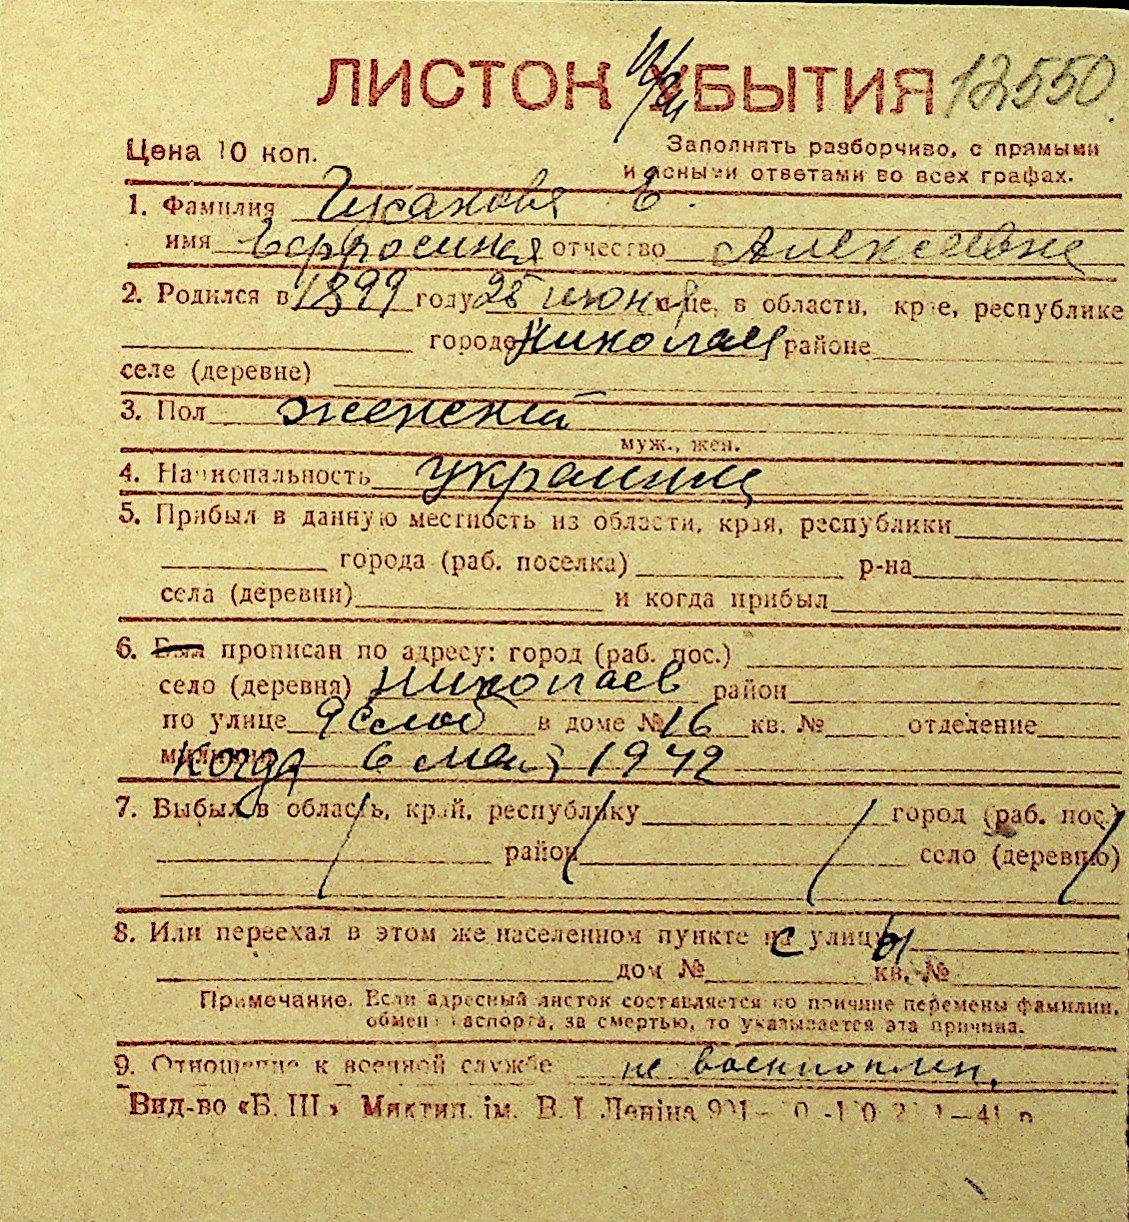 ЛИСТОК УБЫТИЯ 12550
Цена 10 коп. Заполнять разборчиво, с прямыми
и ясными ответами во всех графах.
1. Фамилия Е.
имя Ефросиния отчество Алексеевна
2. Родился в 1899 году 25 июня м-це, в области, крае, республике
городе Николаев районе
селе (деревне)
3. Пол женский
муж., жен.
4. Национальность украинц
5. Прибыл в данную местность из области, края, республики
города (раб. поселка) р-на
села (деревни) и когда прибыл
6. Был прописан по адресу: город (раб. пос.)
село (деревня) Николаев район
по улице 9 Слоб в доме № 16 кв. № отделение
милиции Когда 6 мая 1942
7. Выбыл в область, край, республику город (раб. пос.)
район село (деревню)
8. Или переехал в этом же населенном пункте на улицу
дом № кв. №
Примечание. Если адресный листок составляется по причине перемены фамилии,
обмена паспорта, за смертью, то указывается эта причина.
9. Отношение к военной службе не военноплен.
Вид-во «Б. Ш» Миктип. ім. В. І. Леніна